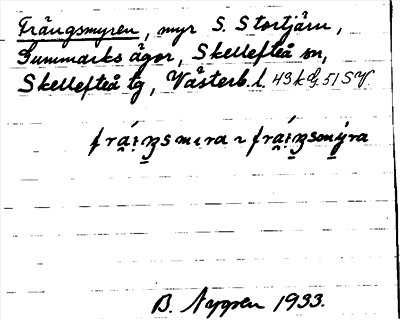 Frängsmyren, myr S. Stortjärn,
Summarks ägor, Skellefteå sn,
Skellefteå tg, Västerb. l. 43 k G. 51 SV
B. Nygren 1933.